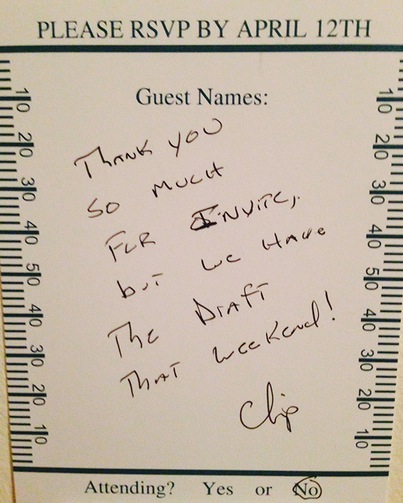 PLEASE RSVP BY APRIL 12TH
Guest Names:
THANK YOU
SO MUCH
FOR INVITE,
but we HAVE
The DRAFT
THAT weekend!
Chip
1 0
2 0
3 0
4 0
5 0
4 0
3 0
2 0
1 0
1 0
2 0
3 0
4 0
5 0
4 0
3 0
2 0
1 0
Attending? Yes or No